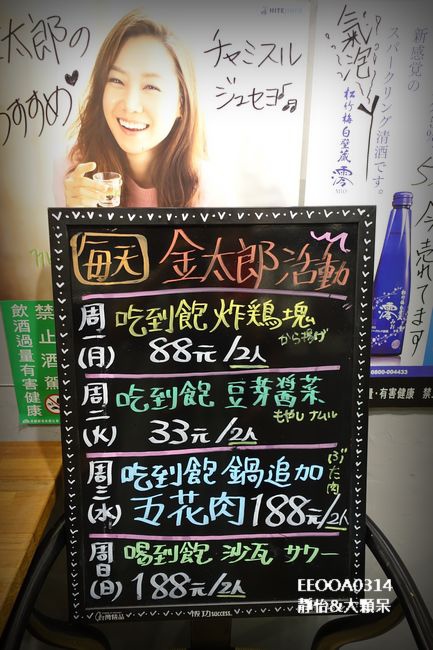 太郎の
おすすめ♥
チャミスル
ジュセヨ♪♫
HITEJINRO
氣泡
松竹梅白壁蔵 澪
MIO
新感覚の
スパークリング清酒です。
今売れてます
澪
0800-004433
禁止酒駕
飲酒過量有害健康
過量，有害健康 禁
每天 金太郎活動
周一(月) 吃到飽 炸鶏塊
から揚げ
88元/2人
周二(火) 吃到飽 豆芽醬菜
もやしナムル
33元/2人
周三(水) 吃到飽 鍋追加
五花肉 188元/2人
ぶた肉
周日(日) 喝到飽 沙瓦 サワー
188元/2人
台灣精品
成功 success
EEOOA0314
靜怡&大顆呆